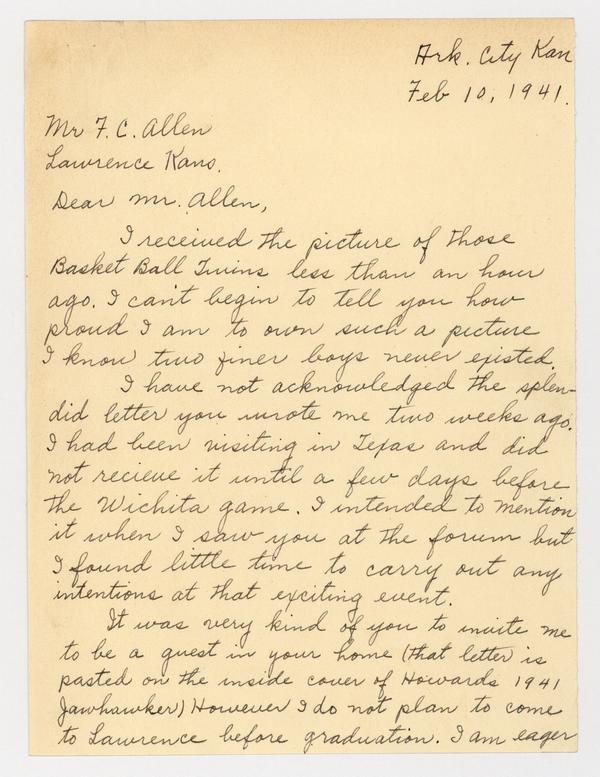 Ark. City Kan
Feb 10, 1941.
Mr F. C. Allen
Lawrence Kans.
Dear Mr. Allen,
I received the picture of those
Basket Ball Twins less than an hour
ago. I can't begin to tell you how
proud I am to own such a picture
I know two finer boys never existed.
I have not acknowledged the splen-
did letter you wrote me two weeks ago.
I had been visiting in Texas and did
not recieve it until a few days before
the Wichita game. I intended to mention
it when I saw you at the forum but
I found little time to carry out any
intentions at that exciting event.
It was very kind of you to invite me
to be a guest in your home (that letter is
pasted on the inside cover of Howards 1941
Jawhawker) However I do not plan to come
to Lawrence before graduation. I am eager